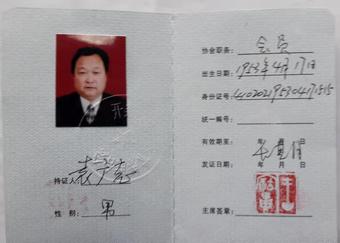 持证人
性 别：男
协会职务：会员
出生日期：1953年4月17日
身份证号：410202195304171515
统一编号：
有效期至： 年 月 日
长期有效
发证日期： 年 月 日
主席签章：